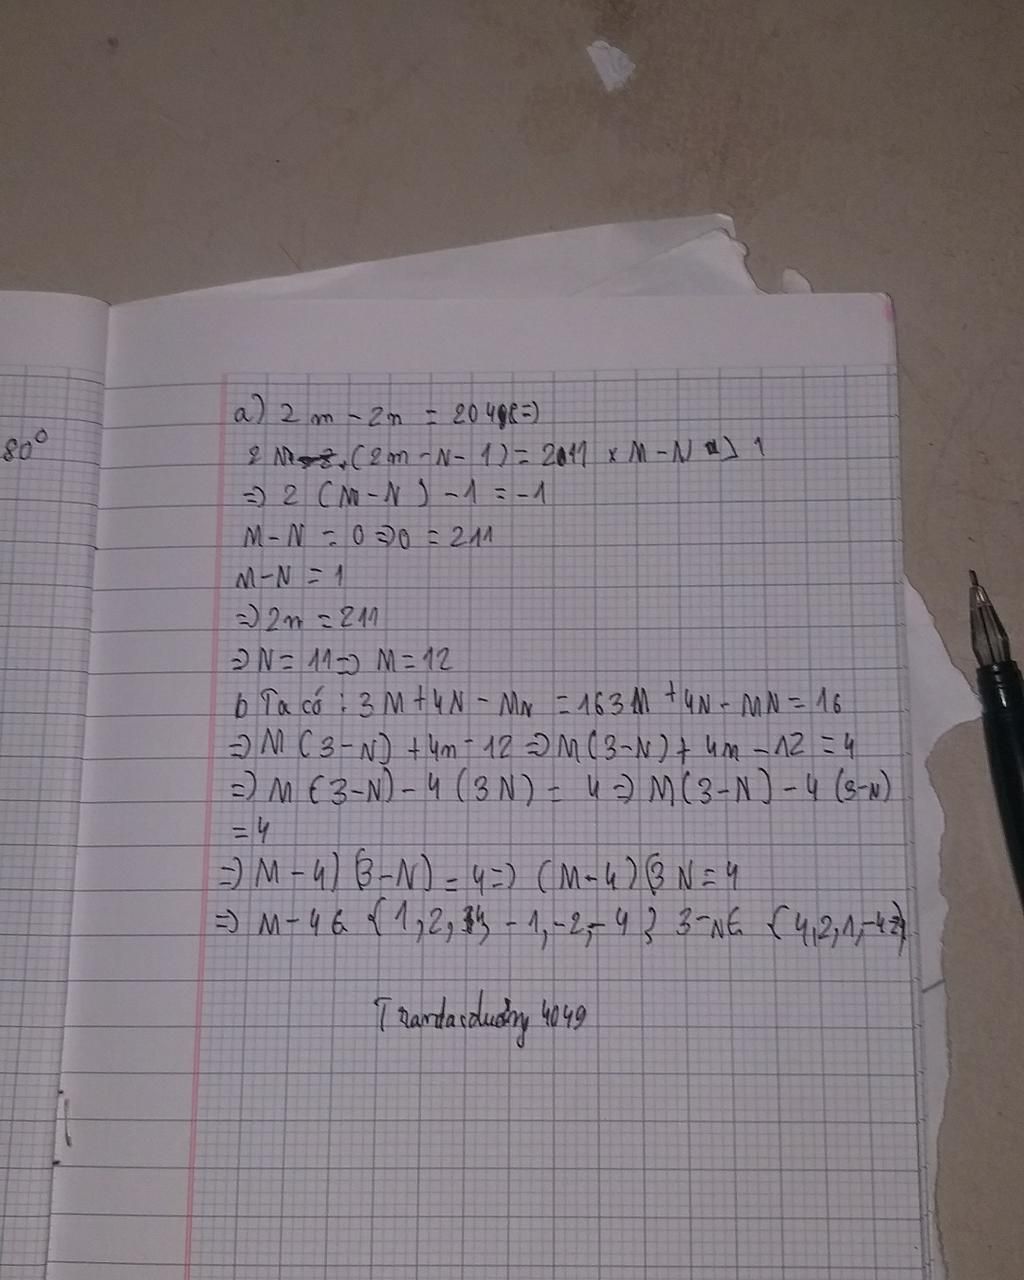 80°
a) 2m - 2n = 2048 =)
2N (2m - N - 1) = 2011 × M - N 1
=) 2 (M - N) - 1 = -1
M - N = 0 =) 0 = 211
M - N = 1
=) 2n = 211
=) N = 11 =) M = 12
b Ta có : 3M + 4N - MN = 163M + 4N - MN = 16
=) M (3 - N) + 4m - 12 =) M (3 - N) + 4m - 12 = 4
=) M (3 - N) - 4 (3N) = 4 =) M (3 - N) - 4 (3 - N)
= 4
=) M - 4) (3 - N) = 4 =) (M - 4) (3 N = 4
=) M - 4 ∈ {1, 2, 4, -1, -2, -4} 3 - N ∈ {4, 2, 1, -4
4049